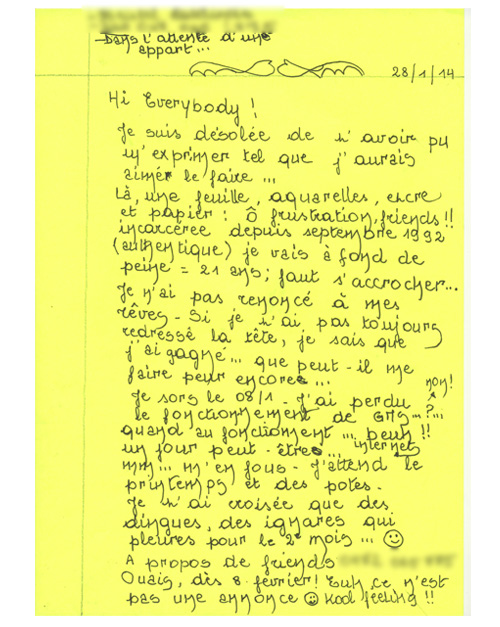 Dans l'attente d'une
appart...
28/1/14
Hi Everybody !
Je suis désolée de n'avoir pu
m'exprimer tel que j'aurais
aimér le faire ...
Là, une feuille, aquarelles, encre
et papier : Ô frustration, friends !!
incarcérée depuis septembre 1992
(authentique) je vais à fond de
peine = 21 ans ; faut s'accrocher...
Je n'ai pas renoncé à mes
rêves - Si je n'ai pas toujours
redressé la tête, je sais que
j'ai gagné ... que peut-il me
faire peur encore ...
Je sors le 08/1 - J'ai perdu non!
le fonctionnement de ...?...
quand au fonctionment ... !!
un jour peut-êtres... internet
mm ... m'en fous - J'attend le
printemps et des potes.
Je n'ai croisée que des
dingues, des ignares qui
pleures pour le 2e mois ... ☺
A propos de friends
Ouais, dès 8 février ! Euh ce n'est
pas une annonce ☺ kool feeling !!